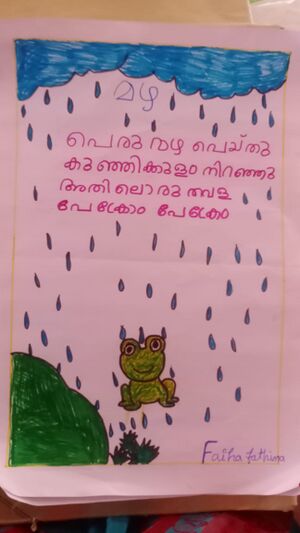 മഴ
പെരു മഴ പെയ്തു
കുഞ്ഞിക്കുളം നിറഞ്ഞു
അതിലൊരു തവള
പേക്രോം പേക്രോം
Faiha fathima